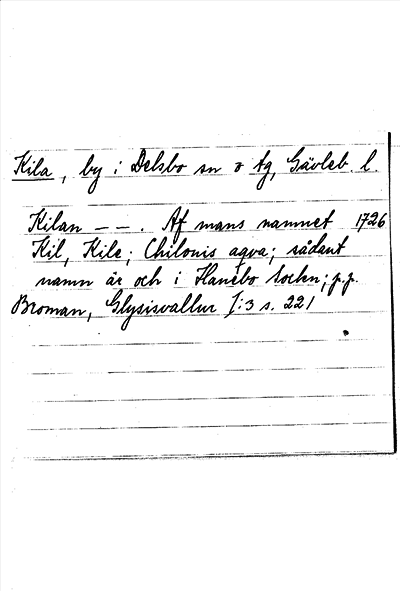 Kila, by i Delsbo sn o tg, Gävleb. l.
Kilan – – . Af mans namnet 1726
Kil, Kile; Chilonis aqva; sådant
namn är och i Hanebo Sochn; p.p.
Broman, Glysisvallur I:3 s. 221